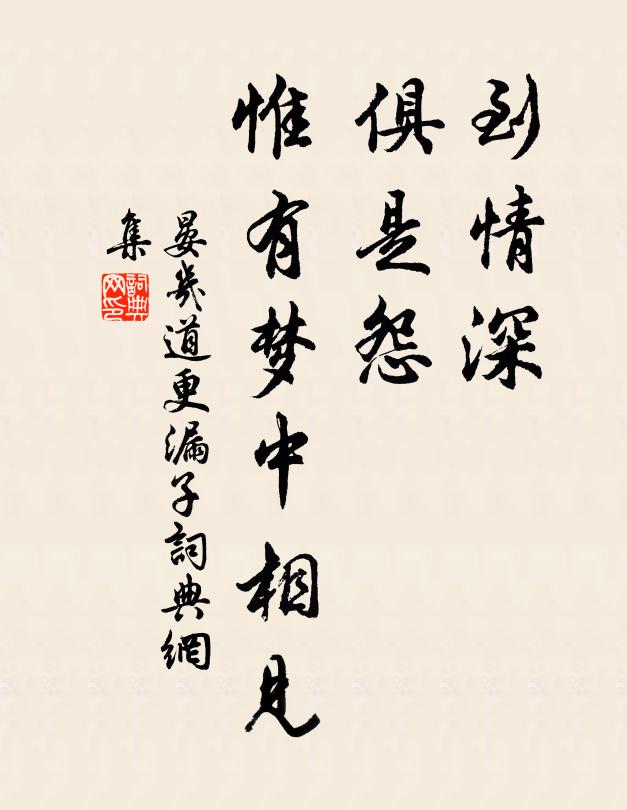 到情深
俱是怨
惟有梦中相见
晏幾道更漏子詞典網
集
詞典网印